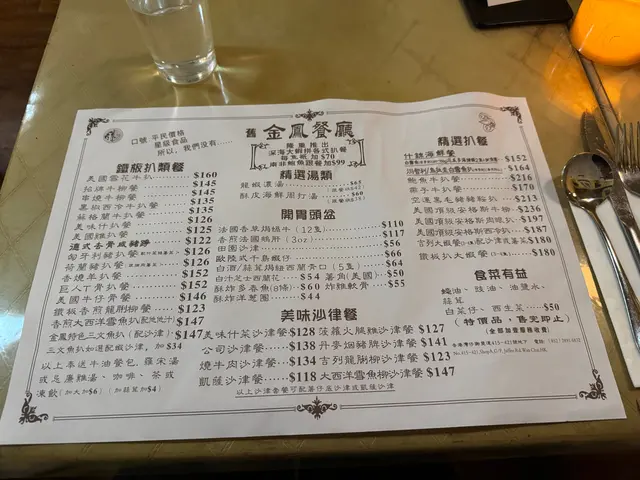 口號 平民價格
星級食品
所以，我們沒有......
舊 金鳳餐廳
隆重推出
深海大蝦拼各式扒餐
每隻祇加$70
南非鮑魚跟餐加$99
鐵板扒類餐
美國雪花牛扒 $160
招牌牛柳餐 $145
串燒牛柳餐 $145
黑椒西冷牛扒餐 $135
蘇格蘭牛扒餐 $135
美味什扒 $125
美國雞扒餐
香燒羊扒餐 $132
巨人T骨扒餐 $152
美國牛仔骨餐 $146
鐵板香煎龍脷柳餐 $123
香煎大西洋雪魚扒(配沙律) $147
金鳳特色三文魚扒(配沙律) $147
三文魚扒如追配蝦沙律，加$34
以上奉送牛油餐包，羅宋湯
或忌廉雞湯、咖啡、茶或
凍飲(加大加$6) (加蒜茸加$4)
精選湯類
龍蝦濃湯 $65
酥皮海鮮周打湯 $60
開胃頭盆
法國香草焗蜆牛(12隻) $110
香煎法國鵝肝(3oz) $117
田園沙律 $56
歐陸式牛島蠔仔 $66
白酒/蒜茸焗紐西蘭青口(5隻) $64
白汁芝士西蘭花 $54 薯角(美國) $50
酥炸多春魚(8條) $60 炸雞軟骨 $55
酥炸洋葱圈 $44
美味沙律餐
美味什菜沙律餐 $128 菠蘿火腿雞沙律餐 $127
公司沙律餐 $138 丹麥焗豬脾沙律餐 $141
燒牛肉沙律餐 $134 吉列龍脷柳沙律餐 $123
凱薩沙律餐 $118 大西洋雪魚柳沙律餐 $147
以上沙律套餐可配薯仔底沙律或凱薩沙律
精選扒餐
什錦海鮮餐 $152
$164
鮑魚牛扒餐 $216
栗子牛扒餐 $170
空運黑毛豬豬鞍扒 $213
美國頂級安格斯牛柳 $236
美國頂級安格斯肉眼扒 $197
美國頂級安格斯西冷扒 $187
吉列大蝦餐(2隻)配沙律或薯菜 $180
鐵板扒大蝦餐(2隻) $180
食菜有益
蠔油、豉油、油鹽水、
蒜茸
白菜仔、西生菜 $50
(特價品，售完即止)
(全部加壹服務收費)